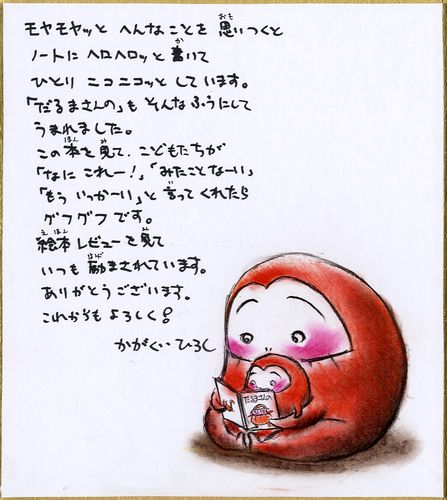 モヤモヤッと へんなことを 思いつくと
ノートに ヘロヘロッと 書いて
ひとり ニコニコッと しています。
「だるまさんの」も そんなふうにして
うまれました。
この本を見て、こどもたちが
「なに これー!」「みたことなーい」
「もう いっかーい」と 言ってくれたら
グフグフ です。
絵本レビューを見て
いつも 励まされています。
ありがとうございます。
これからも よろしく!
かがくい ひろし
だるまさんの